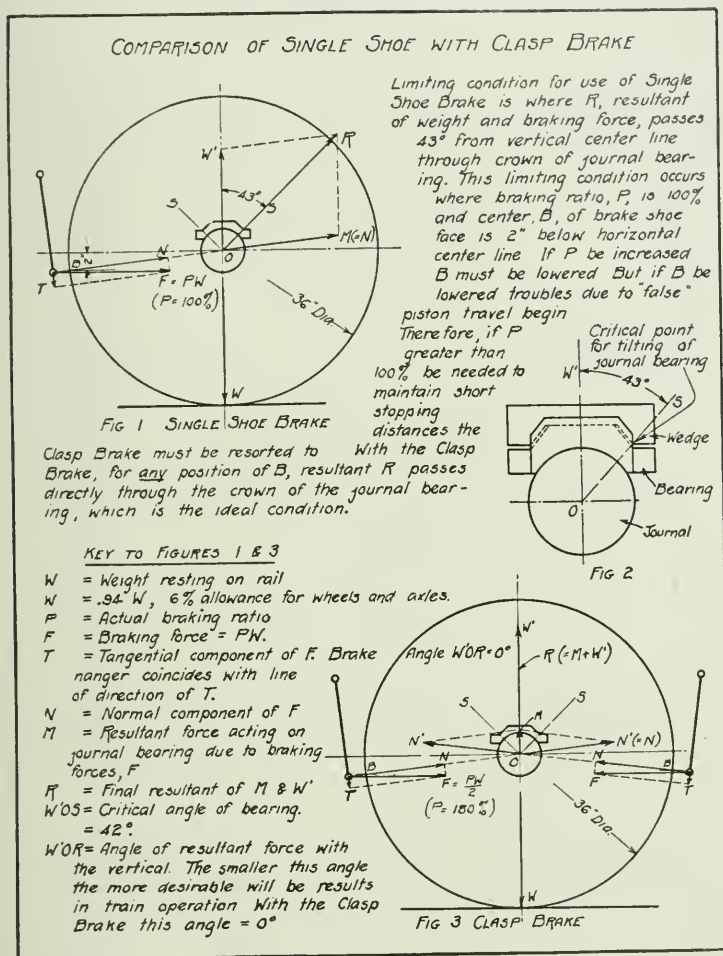 COMPARISON OF SINGLE SHOE WITH CLASP BRAKE
Limiting condition for use of Single
Shoe Brake is where R, resultant
of weight and braking force, passes
43° from vertical center line
through crown of journal bear-
ing. This limiting condition occurs
where braking ratio, P, is 100%
and center, B, of brake shoe
face is 2" below horizontal
center line If P be increased
B must be lowered But if B be
lowered troubles due to "false"
piston travel begin
Therefore, if P
greater than
100% be needed to
maintain short
stopping
distances the
Clasp Brake must be resorted to With the Clasp
Brake, for any position of B, resultant R passes
directly through the crown of the journal bear-
ing, which is the ideal condition.
W'
R
43°
S
S
M(=N)
O
N
B
2"
T
F=PW
(P=100%)
36" Dia.
W
FIG 1 SINGLE SHOE BRAKE
Critical point
for tilting of
journal bearing
W'
43°
S
Wedge
Bearing
O
Journal
FIG 2
KEY TO FIGURES 1 & 3
W = Weight resting on rail
W = .94 W, 6% allowance for wheels and axles.
P = Actual braking ratio
F = Braking force = PW.
T = Tangential component of F. Brake
hanger coincides with line
of direction of T.
N = Normal component of F
M = Resultant force acting on
journal bearing due to braking
forces, F
R = Final resultant of M & W'
W'OS = Critical angle of bearing.
= 42°.
W'OR = Angle of resultant force with
the vertical. The smaller this angle
the more desirable will be results
in train operation With the Clasp
Brake this angle = 0°
Angle W'OR=0°
W'
R(=M+W')
S
S
M
N'
N'(=N)
O
N
N
B
B
F
T
T
F=PW/2
(P=150%)
36" Dia.
W
FIG 3 CLASP BRAKE